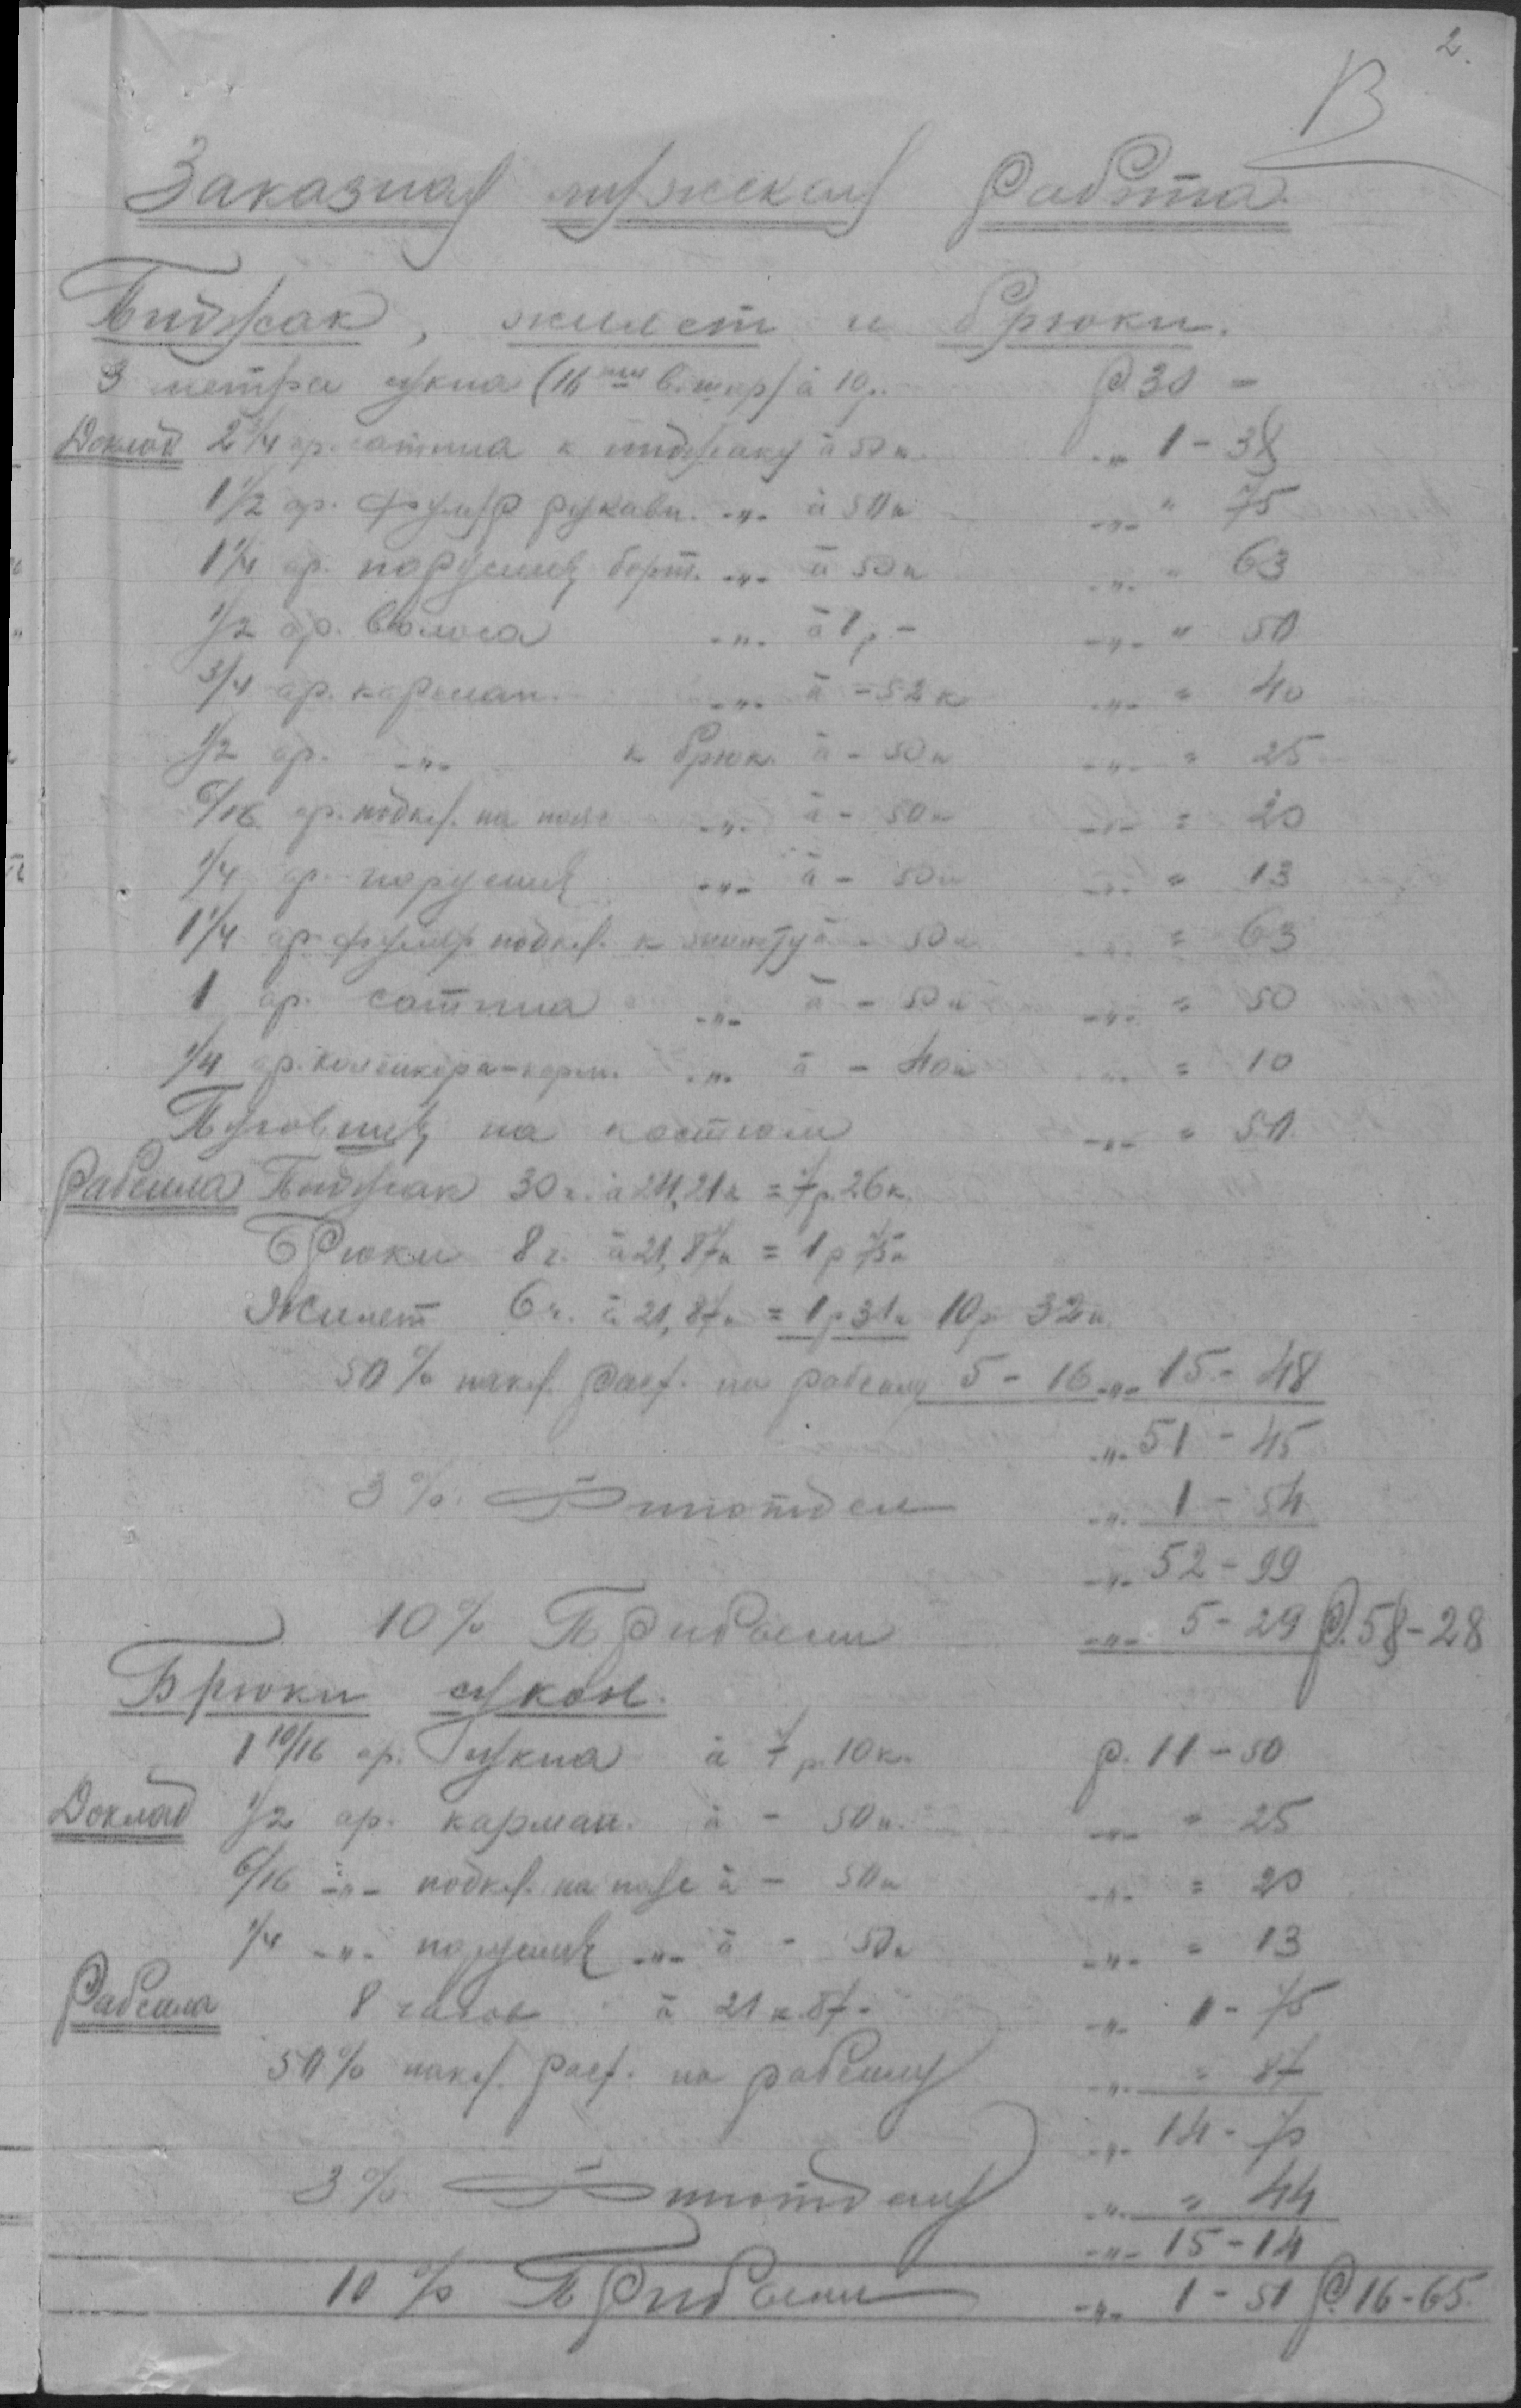 2.
В
Заказная мужская работа.
Пиджак, жилет и брюки.
3 метра сукна (16 в. шир) à 10 р. Р. 30 -
Доклад 2 3/4 ар. сатина к пиджаку à 50 к. -„- 1 - 38
1 1/2 ар. футер рукавн. -„- à 50 к -„- " 75
1 1/4 ар. парусины борт. -„- à 50 к -„- " 63
1/2 ар. волоса -„- à 1 р. - -„- " 50
3/4 ар. карман. -„- à - 52 к -„- " 40
1/2 ар. -„- к брюк. à - 50 к -„- " 25
6/16 ар. подкл. на пояс -„- à - 50 к -„- = 20
1/4 ар. парусины -„- à - 50 к -„- " 13
1 1/4 ар. футер подкл. к жилету à - 50 к -„- = 63
1 ар. сатина -„- à - 50 к -„- = 50
1/4 ар. коленкора-карм. -„- à - 40 к -„- = 10
Пуговицы на костюм -„- " 50
Рабсила Пиджак 30 ч. à 24,21 к = 7 р. 26 к.
Брюки 8 ч. à 21,87 к = 1 р 75 к
Жилет 6 ч. à 21,87 к = 1 р 31 к 10 р 32 к
50% накл. расх. на рабсилу 5 - 16 -„- 15 - 48
-„- 51 - 45
3% Финотдел -„- 1 - 54
-„- 52 - 99
10% Прибыли -„- 5 - 29 Р. 58 - 28
Брюки сукон.
1 10/16 ар. Сукна à 7 р. 10 к. р. 11 - 50
Доклад 1/2 ар. карман. à - 50 к. -„- " 25
6/16 -„- подкл. на пояс à - 50 к -„- = 20
1/4 -„- парусины -„- à - 50 к -„- = 13
Рабсила 8 часов à 21 к. 87 - -„- 1 - 75
50% накл. расх. на рабсилу -„- = 87
-„- 14 - 70
3% Финотделу -„- " 44
-„- 15 - 14
10% Прибыли -„- 1 - 51 Р. 16 - 65.